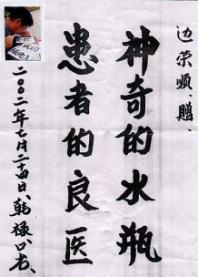 边荣顺、赠、
神奇的水瓶
患者的良医
二〇〇二年七月二十四日、韩禄公书、